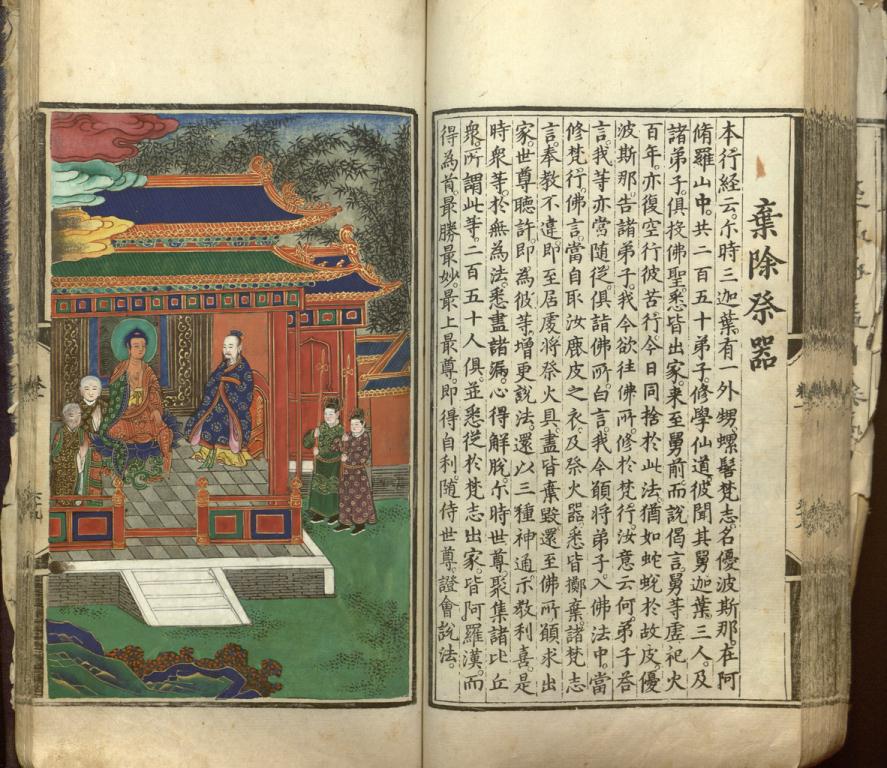 棄除祭器
本行経云。尒時三迦葉有一外甥。螺髻梵志名優波斯那。在阿
脩羅山中。共二百五十弟子。修學仙道。彼聞其舅迦葉三人。及
諸弟子。俱投佛聖。悉皆出家。来至舅前。而說偈言。舅䓁虗祀火
百年。亦復空行彼苦行。今日同捨於此法。猶如蛇蛻於故皮。優
波斯那。告諸弟子。我今欲往佛所。修於梵行。汝意云何。弟子荅
言。我䓁亦當随從。俱詣佛所。白言。我今願将弟子。入佛法中。當
修梵行。佛言。當自取汝鹿皮之衣。及祭火器。悉皆擲棄。諸梵志
言。奉教不違。即至居處。将祭火具。盡皆棄毀。還至佛所。願求出
家。世尊聽許。即為彼䓁。增更說法。還以三種神通。示教利喜。是
時衆䓁。於無為法。悉盡諸漏。心得解脫。尒時世尊。聚集諸比丘
衆。所謂此䓁。二百五十人俱。並悉從於梵志出家。皆阿羅漢。而
得為首。最勝最妙。最上最尊。即得自利。随侍世尊。證會說法。